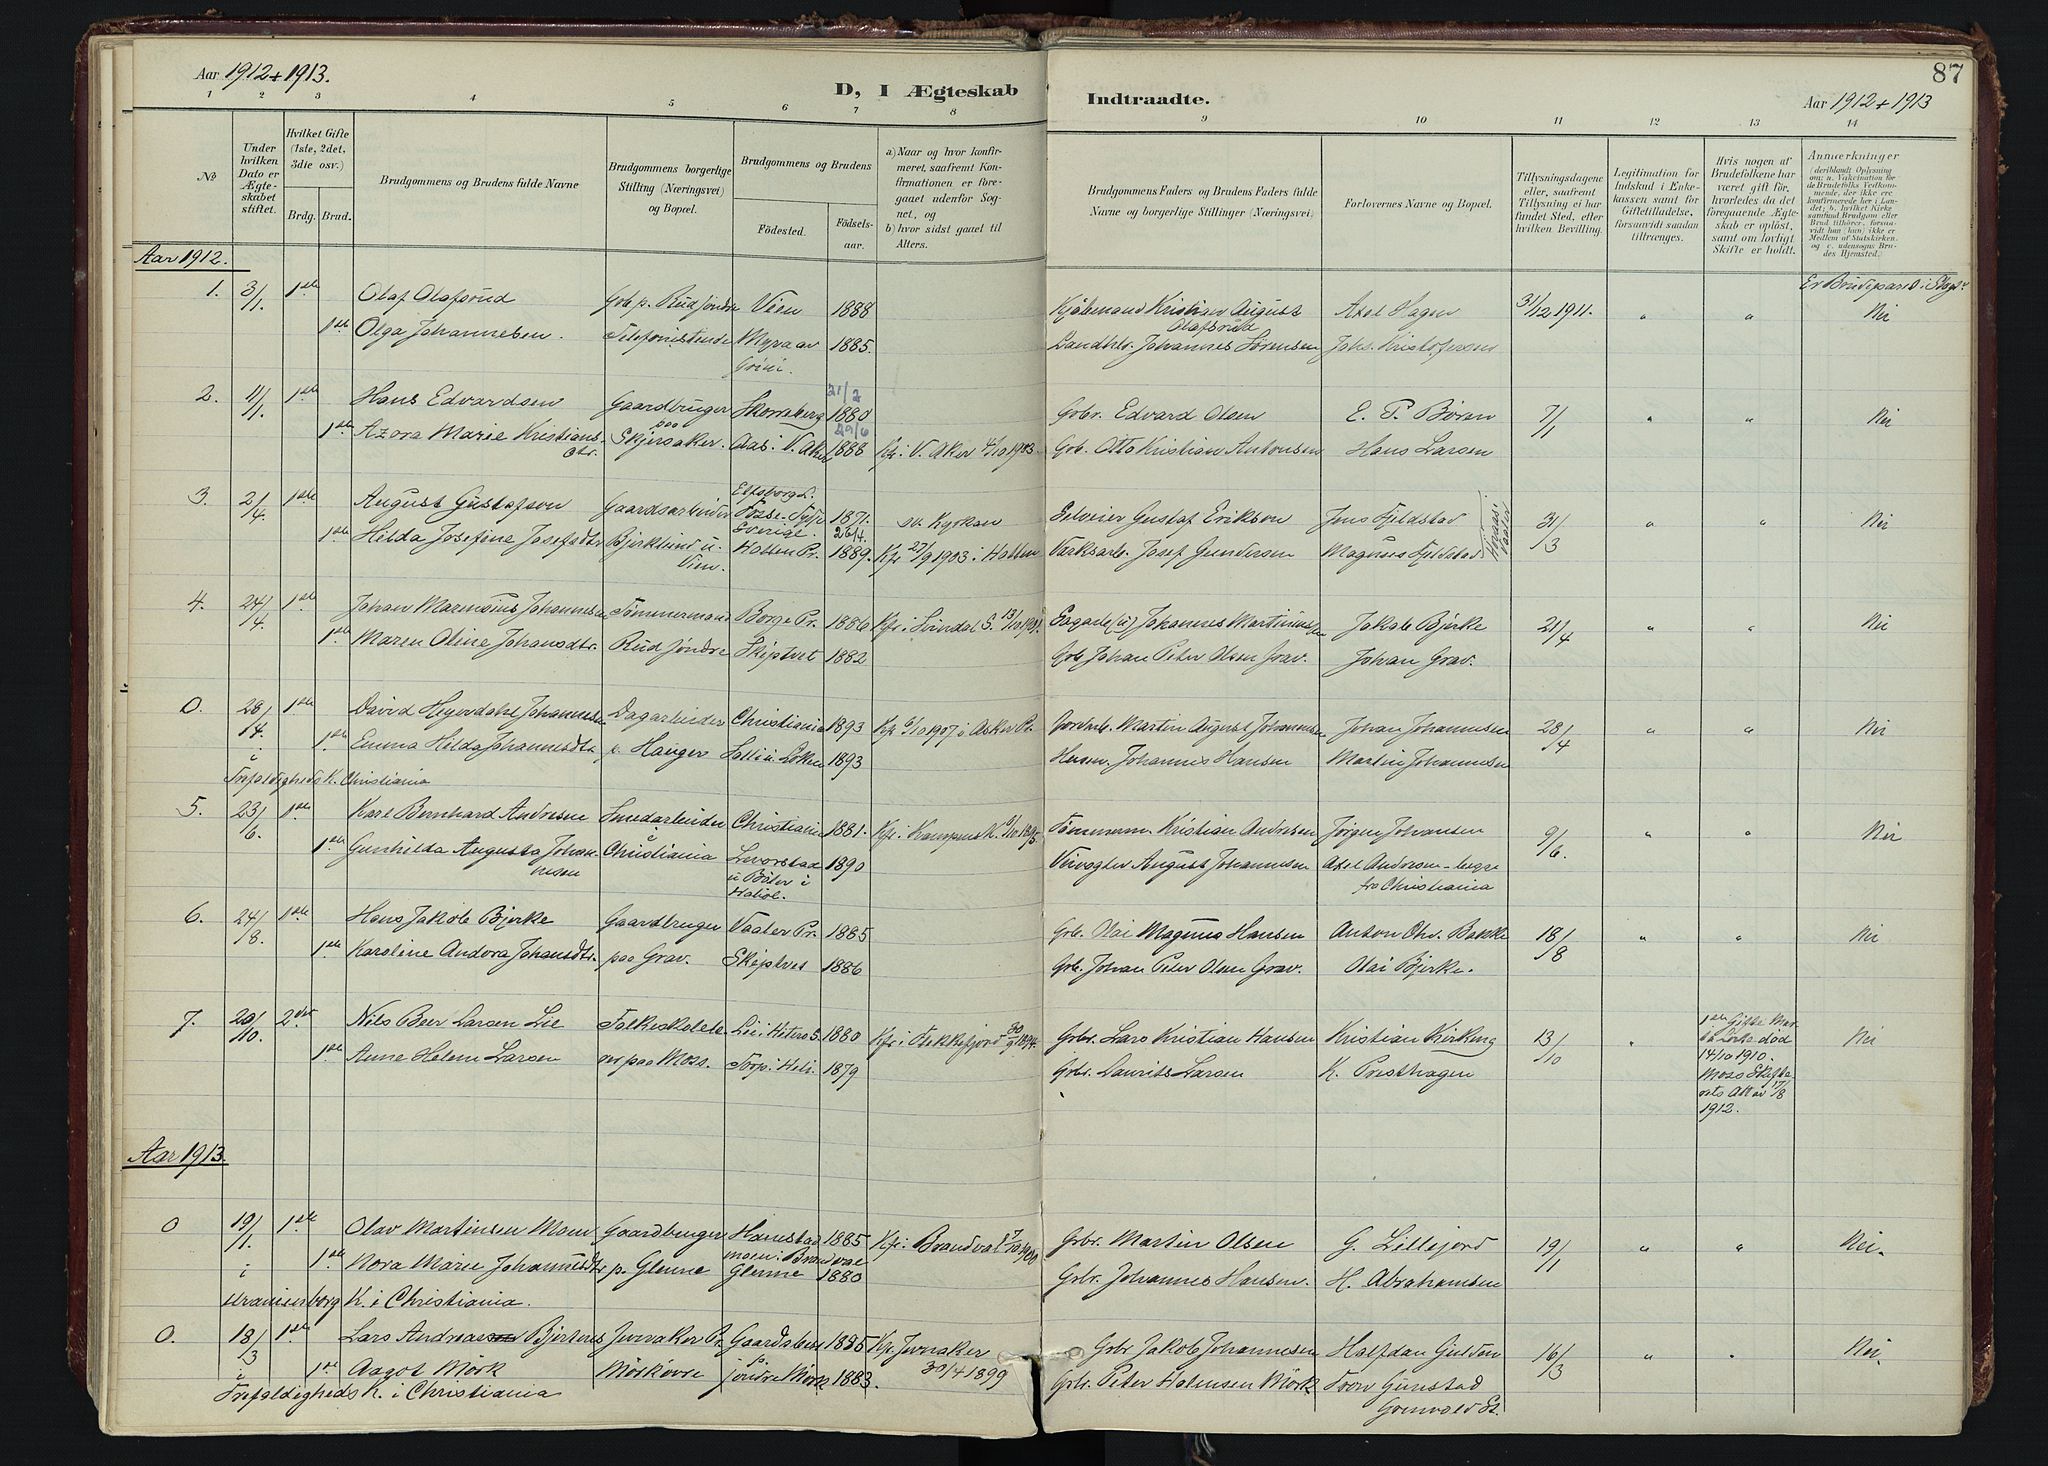 Aar 1912 + 1913.
D, I Ægteskab
Indtraadte.
87
Aar 1912 + 1913
1 2 3 4 5 6 7 8 9 10 11 12 13 14
No
Under hvilken Dato er Ægteskabet stiftet.
Hvilket Gifte (1ste, 2det, 3die osv.)
Brdg. Brud.
Brudgommens og Brudens fulde Navne
Brudgommens borgerlige Stilling (Næringsvei) og Bopæl.
Brudgommens og Brudens
Födested.
Födselsaar.
a) Naar og hvor konfirmeret, saafremt Konfirmationen er foregaaet udenfor Sognet, og
b) hvor sidst gaaet til Alters.
Brudgommens Faders og Brudens Faders fulde Navne og borgerlige Stillinger (Næringsvei)
Forlovernes Navne og Bopæl.
Tillysningsdagene eller, saafremt Tillysning ei har fundet Sted, efter hvilken Bevilling.
Legitimation for Indskud i Enkekassen samt for Giftetilladelse, forsaavidt saadan tiltrænges.
Hvis nogen af Brudefolkene har været gift för, hvorledes da det foregaaende Ægteskab er oplöst, samt om lovligt Skifte er holdt.
Anmærkninger
(deriblandt Oplysning om: a. Vakcination for de Brudefolks Vedkommende, der ikke ere konfirmerede her i Landet; b. hvilket Kirkesamfund Brudgom eller Brud tilhörer, forsaavidt han (hun) ikke er Medlem af Statskirken og c. udensogns Brudes Hjemsted.
Aar 1912.
1. 3/1. 1ste Olaf Olafsrud Grb p. Rud søndre Vien 1888 Kristian August Olafsrud Axel Hagen 31/12 1911. " " Nei
1ste Olga Johannesen. Telefonistinde Myra av Grini. 1885. Landhlr. Johannes Sørensen Johs. Kristofersen
2. 11/1. 1ste Hans Edvardsen Gaardbruger Skomberg 21/2 1880 Grbr. Edvard Olsen E. T. Børen 7/1 " " Nei
1ste Azora Marie Kristiansdtr. paa Skjersaker. Aas i V. Aker 29/6 1888 Kfr. i V. Aker 4/10 1903. Grb. Otto Kristian Antonsen Hans Larsen
3. 2/4 1ste August Gustafson Gaardsarbeider Elfsborg L. Sverige. 1871. 26/4. sv. Kyrkan Gustaf Erikson Jens Fjeldstad 31/3 " " Nei
1ste Hilda Josefine Josefsdtr. Bjørklund u. Vien. Hobten Pr. 1889. Kfr 27/9 1903 i Hobten Værksarb. Josef Gundersen Magnus Fjeldstad
4. 24/4. 1ste Johan Marensius Johannesen Tømmermand Borge Pr. 1886 Kfr. i Svindal S. Johannes Martiniussen Jakob Bjerke 21/4 " " Nei
1ste Maren Oline Johansdtr. Rud søndre Skiptvet 1882 Grb Johan Peter Olsen Grav. Johan Grav.
0. 28/4. 1ste David Heyerdahl Johannesen Dagarbeider Christiania 1893 Kfr 6/10 1907 i Asker Pr. Martin August Johannesen Johan Johannesen 28/4 " " Nei
i 1ste Emma Hilda Johannesdtr. p. Hauger 1893 Johannes Hansen Martin Johannesen
Trefoldigheds K. Christiania
5. 23/6. 1ste Karl Bernhard Andresen Smedarbeider i Christiania 1881. Kfr. i Kampens K. Tømmerm. Kristian Andresen Jørgen Johansen 9/6. " " Nei
1ste Gunhilda Augusta Johannesen Christiania Levorstad u Bøler i Hobøl. 1890 August Johannesen Axel Andersen - begge fra Christiania
6. 24/8. 1ste Hans Jakob Bjerke Gaardbruger Vaaler Pr. 1885 Grb. Olai Magnus Hansen Anton Chr. Bakke 18/8 " " Nei
1ste Karoline Andora Johansdtr. paa Grav. Skiptvet 1886 Grb. Johan Peter Olsen Grav. Olai Bjerke.
7. 20/10. 2det Nils Beer Larsen Lie Folkeskolelærer paa Moss. Lie i Hiterø S. 1880 Kfr. i Flekkefjord 30/9 1894. Grbr. Lars Kristian Hansen Kristian Kirkeng 13/10 " 1ste Gifte død 14/10 1910. Moss Skifterets Att av 17/8 1912. Nei
1ste Anne Helene Larsen Torp i Heli. 1879 Grbr. Laurits Larsen K. Presthagen
Aar 1913.
0 19/1. 1ste Olav Martinsen Moen Gaardbruger Hamstad moen i Brandval 1885 Kfr. i Brandval Grbr. Martin Olsen G. Lillejord 19/1 " " Nei.
i 1ste Nora Marie Johannesdtr. p. Glenne Glenne 1880 Grbr. Johannes Hansen. H. Abrahamsen
Uranienborg K. i Christiania.
0. 18/3 1ste Lars Andreas Bjertnes Jevnaker Pr. 1885 Kfr. Jevnaker 30/4 1899 Grbr Jakob Johannesen Halfdan Gulden 16/3 " " Nei.
i 1ste Aagot Mørk Mørkøvre søndre Mørk 1883. Grbr. Peter Halvorsen Mørk Thorn Gunstad
Trefoldigheds K. i Christiania